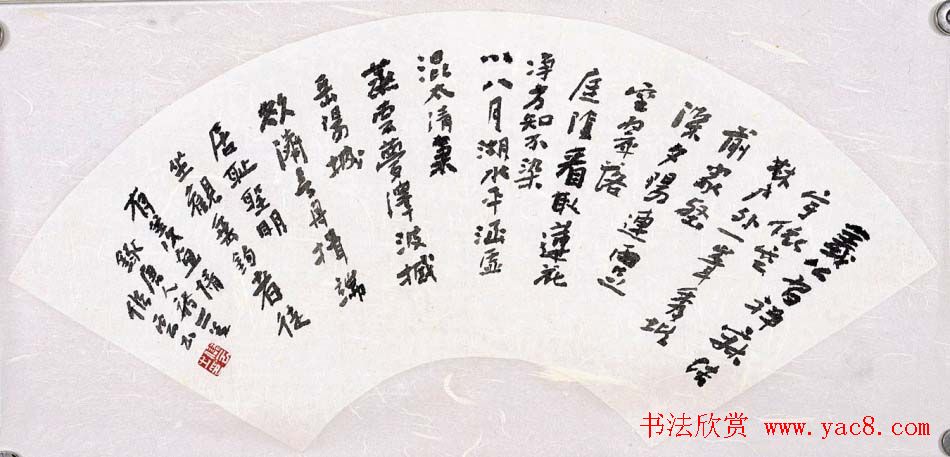 義公習禪寂結
宇依空
林戶外一峯秀階
前家壑
深夕陽連雨足
空翠落
庭陰看取蓮花
淨方知不染
心八月湖水平涵虛
混太清氣
蒸雲夢澤波撼
岳陽城
欲濟無舟楫端
居恥聖明
坐觀垂釣者徒
有羨魚情
錄唐人詩二首
書
书法欣赏 www.yac8.com